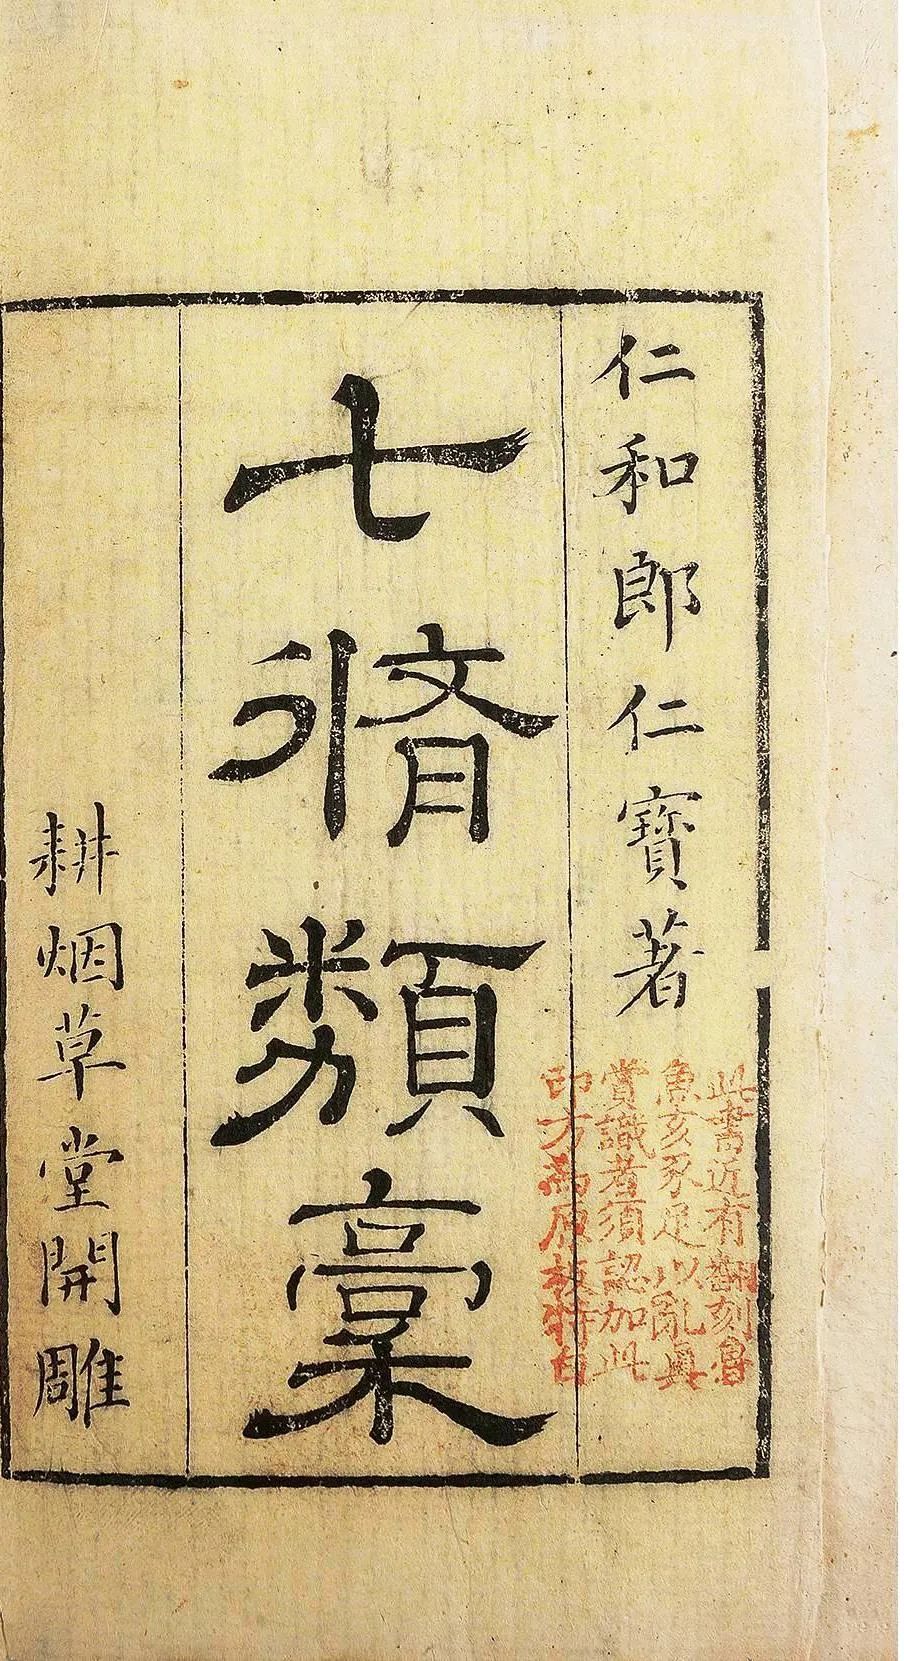 仁和郎仁寶著
此書近有翻刻魯
魚亥豕足以亂真
賞識者須認加此
印方為原板特白
七脩類稾
耕烟草堂開雕